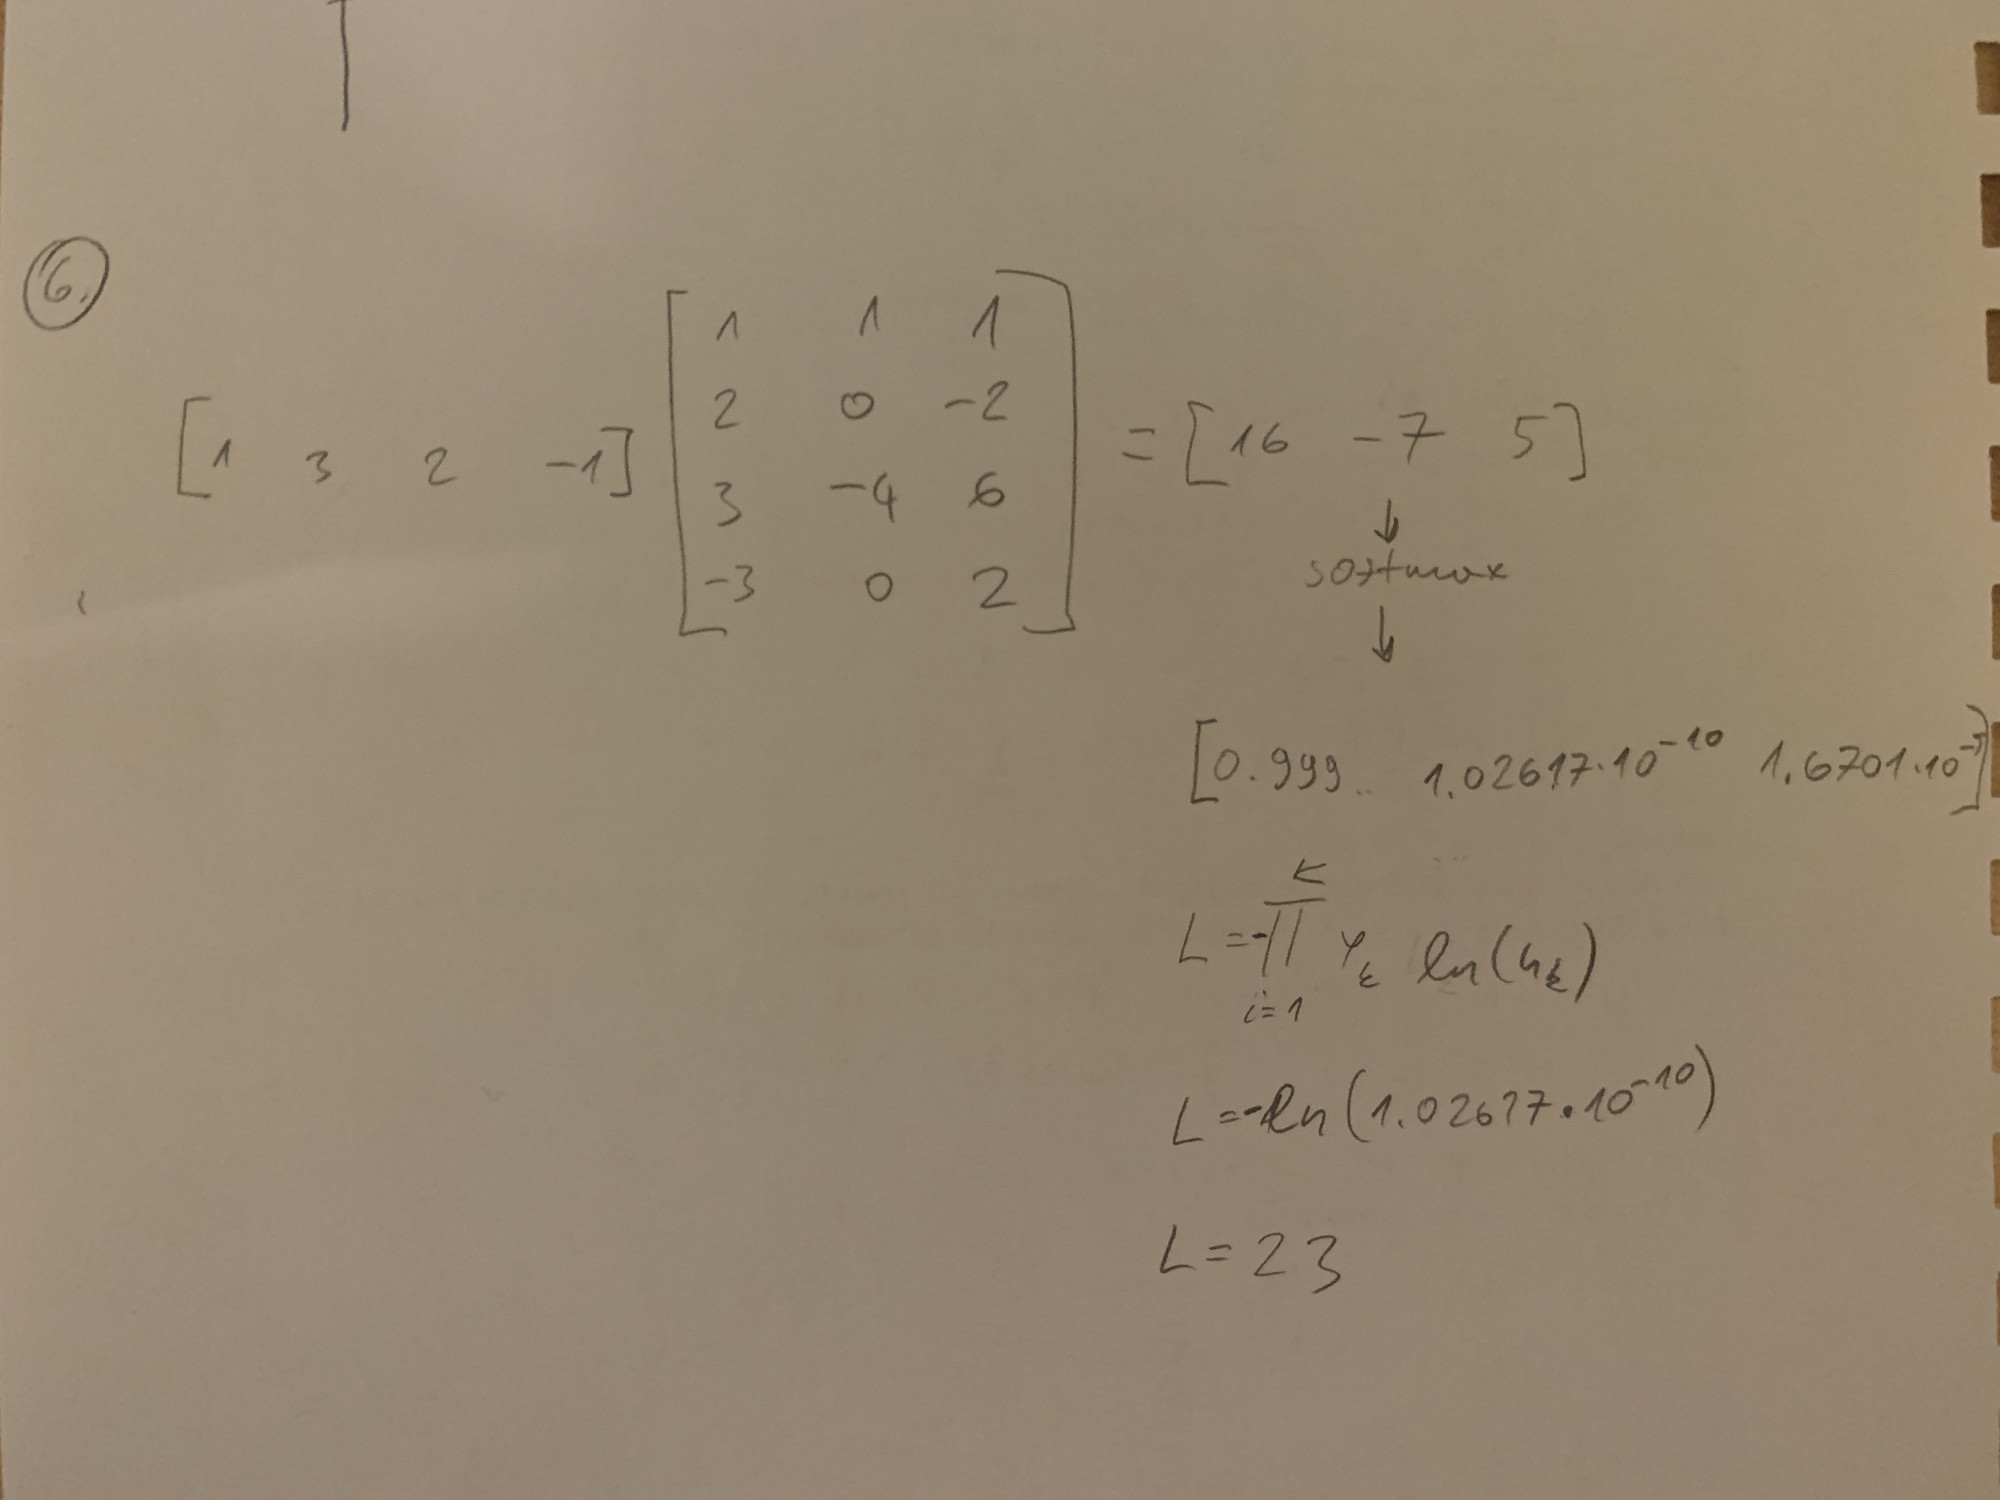 6.
[1 3 2 -1] [1 1 1
2 0 -2
3 -4 6
-3 0 2] = [16 -7 5]
↓
softmax
↓
[0.999.. 1.02617·10^-10 1.6701·10^-5]
K
L = -∏ y_k ln(h_k)
i=1
L = -ln(1.02617·10^-10)
L = 23